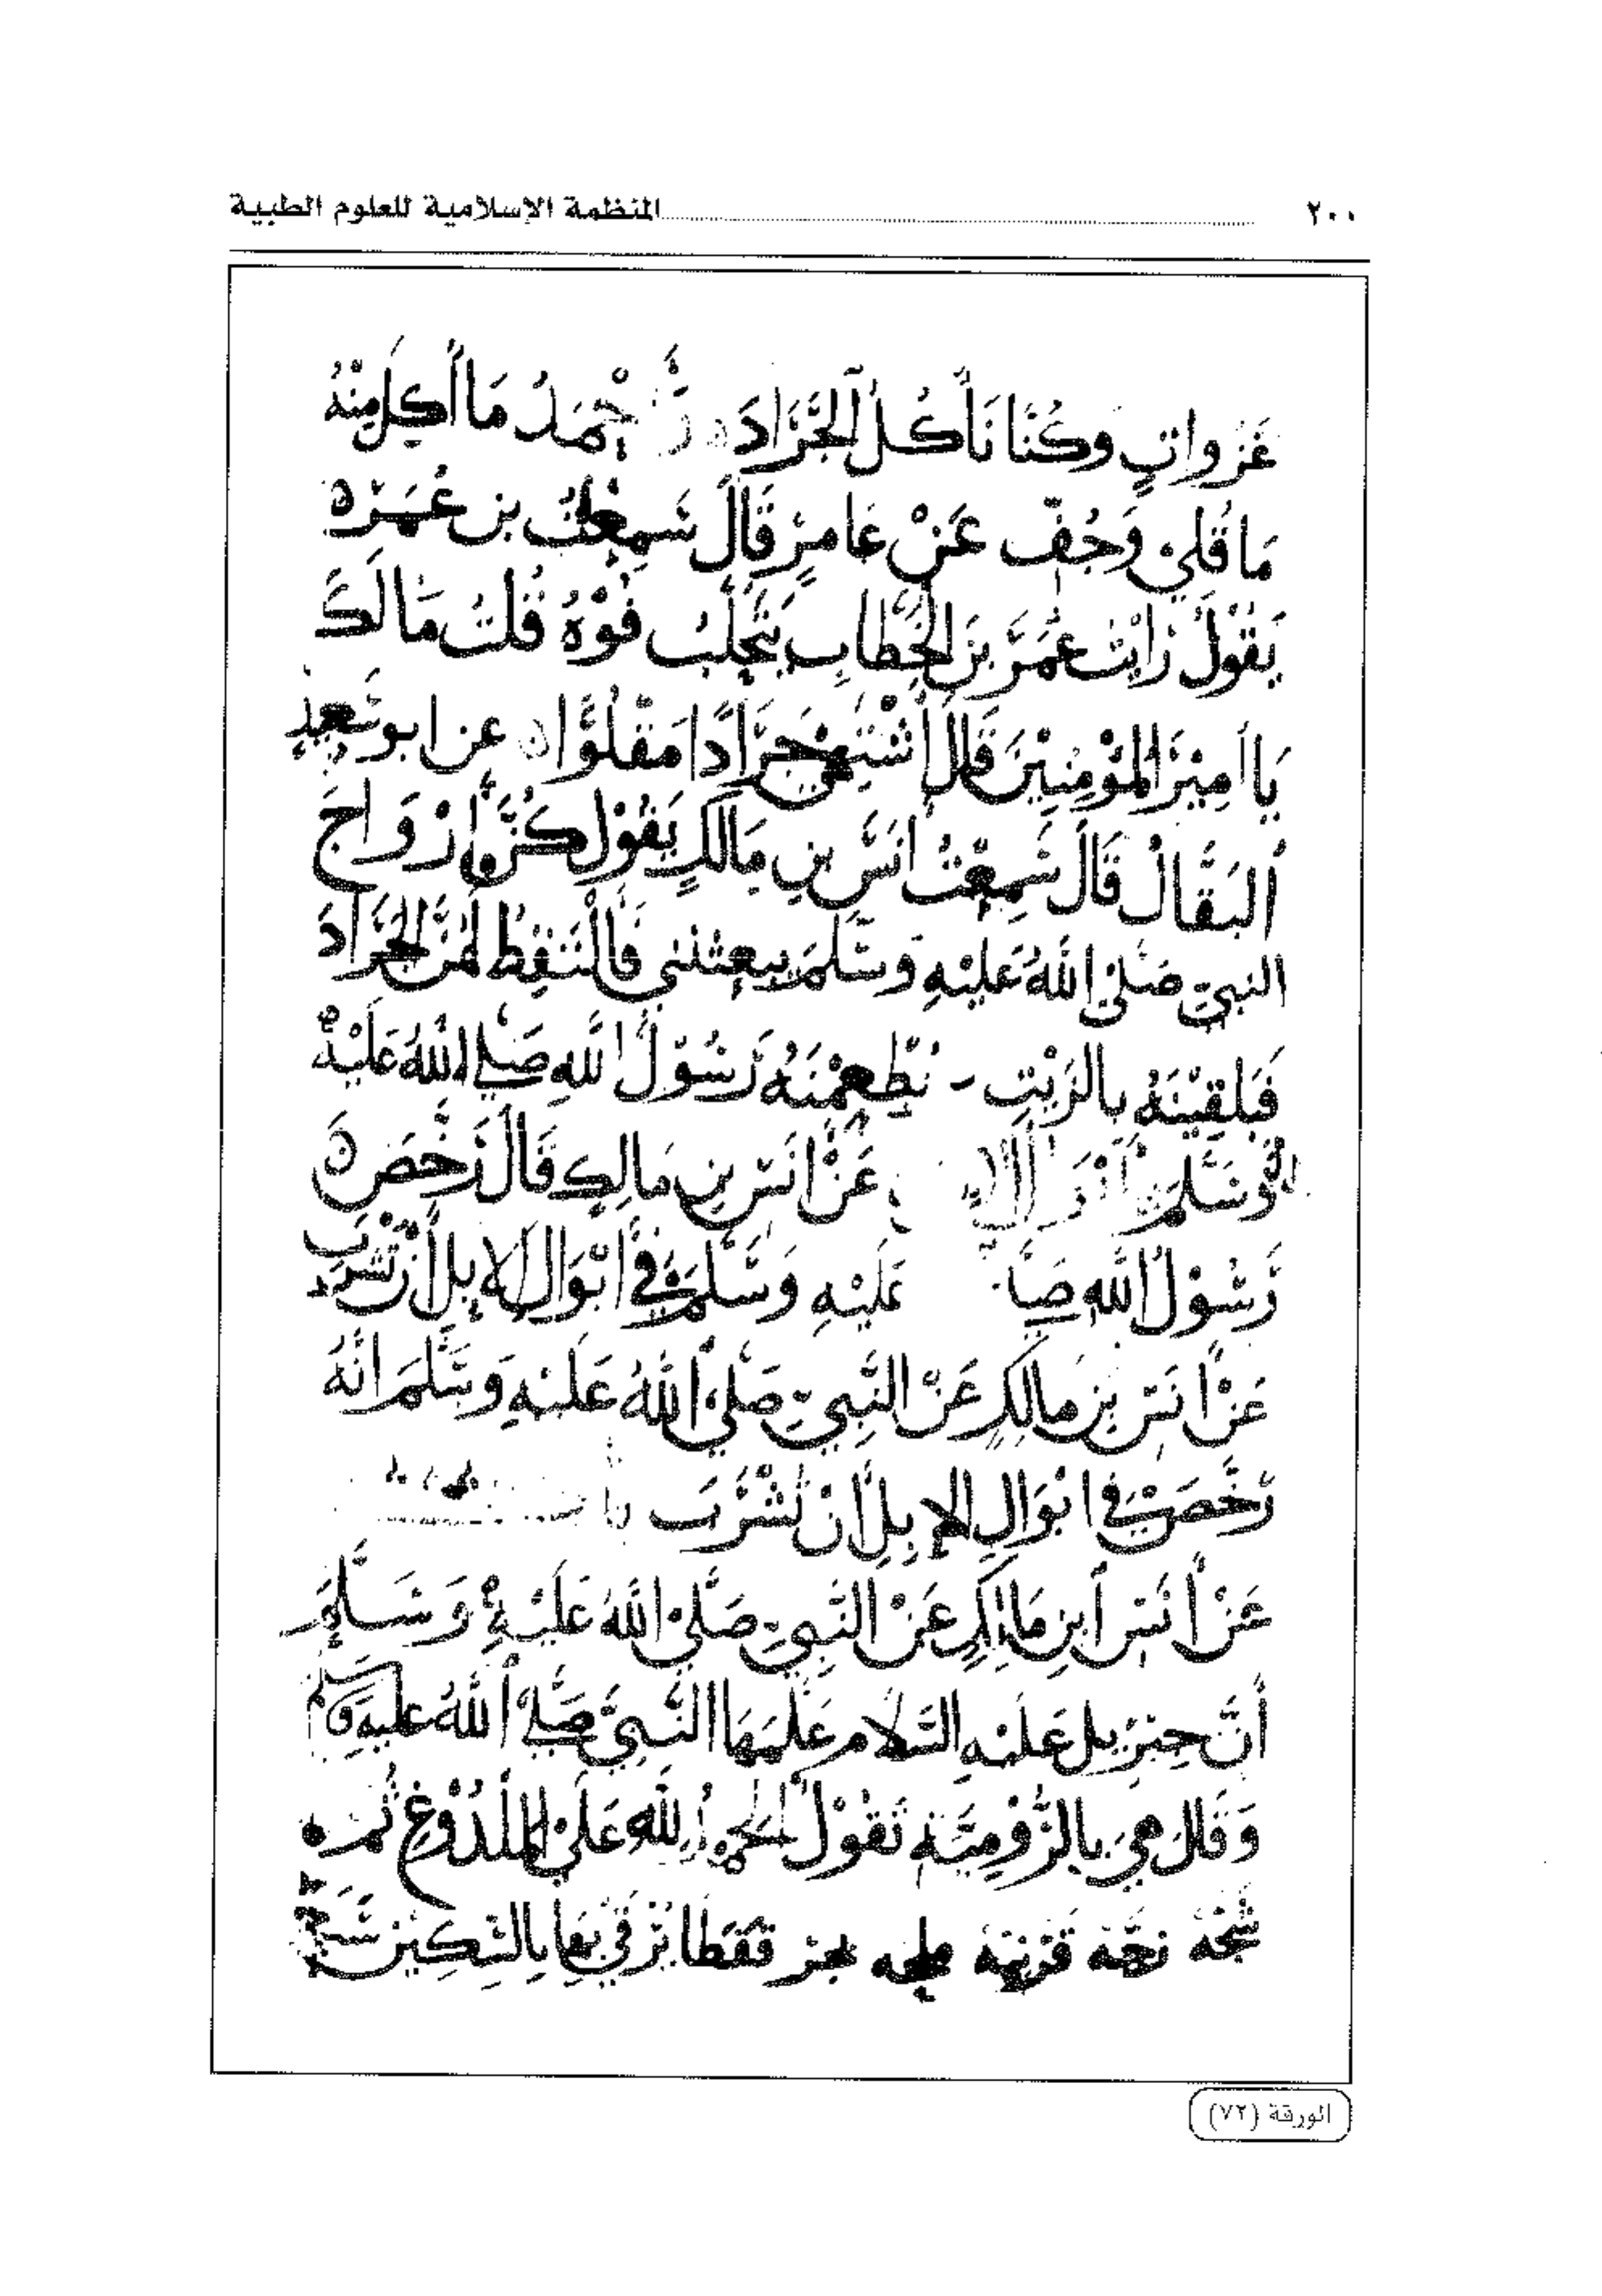 ٢٠٠ المنظمة الإسلامية للعلوم الطبية
غَزَواتٍ وكُنَّا نَأكُلُ الجَّرَادَ أحْمَدُ مَا أُكِلَ مِنْهُ
مَا قُلِيَ وَجُفّ عَنْ عَامِرٍ قَالَ سَمِعْتُ بن عُمَرْ
يَقُوْلُ رَأيْتُ عُمَرَ بنَ الخَطابِ يَتَحَلَّبُ فُوْهُ قُلتُ مَا لَكَ
يَا أمِيْرَ المُؤْمِنِيْنَ قَالَ أشْتَهِيْ جَرَادًا مَقْلُوًّا عن ابو سَعِيدٍ
البَقَّالْ قَالَ سَمِعْتُ أنَسَ بنِ مَالكٍ يَقُوْل كُنَّ أزْوَاجَ
النبيّ صَلّىْ اللهُ عَليْهِ وَسَّلمَ يبعثنني فَألْتَقِطُ لَهُنَّ الجَرَادَ
فَيَلقِيْنَهُ بالزَيْتِ نُطْعِمْنَهُ رَسُوْلَ اللهِ صَلى اللهُ عَلَيْهِ
وَسَّلمَ عَنْ أنَس بنِ مَالِكٍ قَالَ رَخَّصَ
رَسُوْلُ الله عَليْهِ وَسَّلمَ فِي أبْوَال الإبلِ أنْ تَشْرَبَ
عَنْ أنَس بنِ مَالِكٍ عَنْ النَّبِيّ صَلىْ اللهُ عَليْهِ وَسَّلمَ أنَّهُ
رَخَّصَ فِي أبْوَالِ الإبِلِ أنْ تُشْرَبَ
عَنْ أنَس أبنِ مَالكٍ عَنْ النَّبِيّ صَلّىْ اللهُ عَليْهِ وَسَّلمَ
أنَّ جبْرِيل عَليْهِ السَّلام عَلمَهَا النَّبِيَّ صَلّىْ اللهُ عَليهِ وَسلم
وَقَالَ هِيَ بالرُّوْمِيَّة تَقُوْلُ الحمدُ لِلّهِ عَلىْ المَلْدُوْغِ ثُمَ
شَجْهْ نجّه قَرْنِيّهْ ملحه بحر قفَطا يَرْقىْ بِهَا بِالسِّكِيْنِ
الورقة (٧٢)